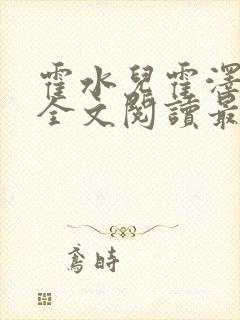 霍水兒霍澤
全文閱讀最
鳶時